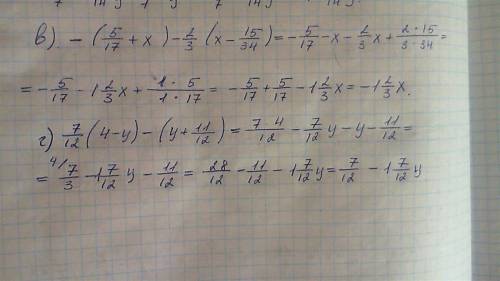 в). -(5/17 + x) - 2/3 (x - 15/34) = - 5/17 - x - 2/3 x + (2·15)/(3·34) =
= - 5/17 - 1 2/3 x + (1·5)/(1·17) = - 5/17 + 5/17 - 1 2/3 x = -1 2/3 x.
г) 7/12 (4-y) - (y + 11/12) = (7·4)/12 - 7/12 y - y - 11/12 =
= 4/ 7/3 - 1 7/12 y - 11/12 = 28/12 - 11/12 - 1 7/12 y = 7/12 - 1 7/12 y